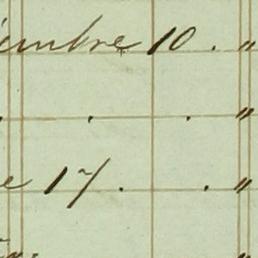 embre 10 . "
. . . "
e 17 . . "
"